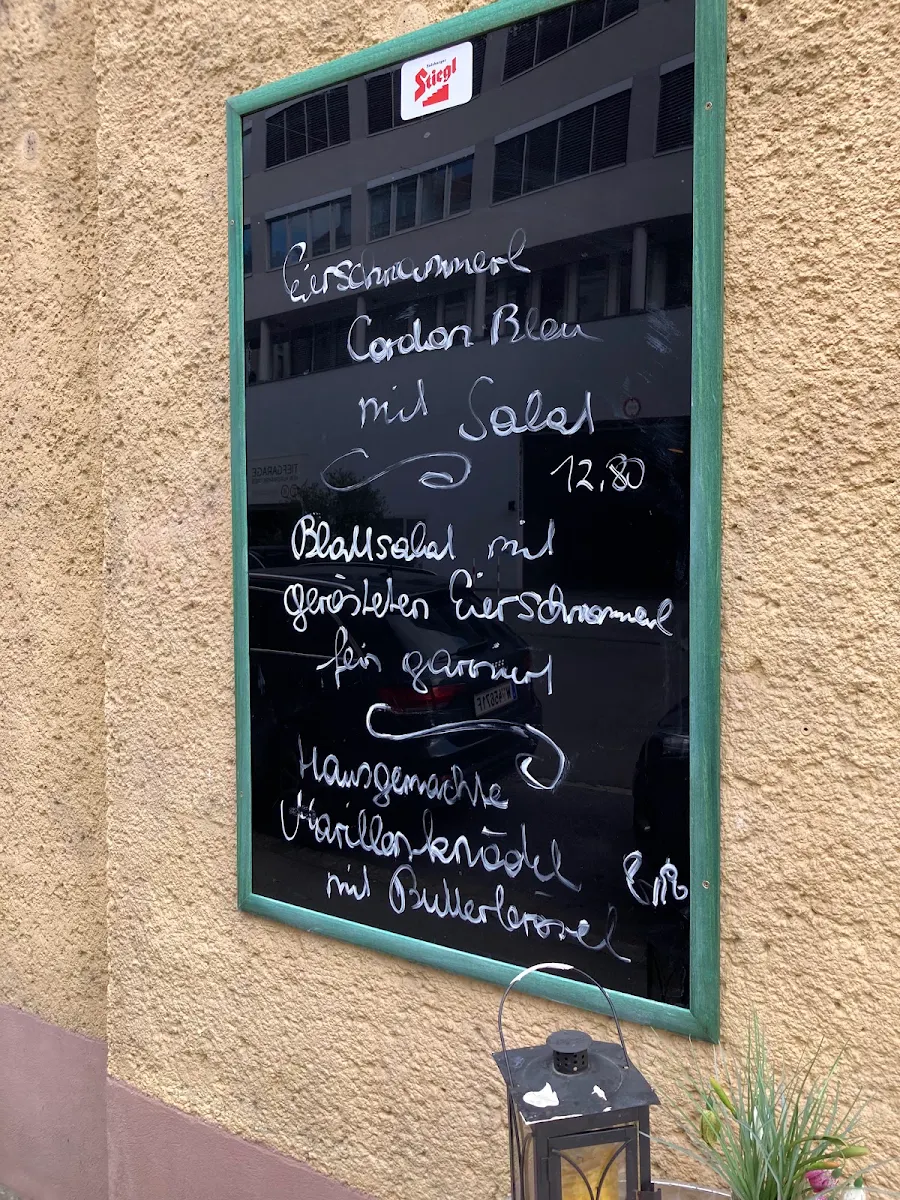 Salzburger
Stiegl
Eierschwammerl
Cordon Bleu
mit Salat
12,80
Blattsalat mit
gerösteten Eierschwammerl
fein garniert
Hausgemachte
Marillenknödel
mit Butterbrösel
TIEFGARAGE
W 45671F